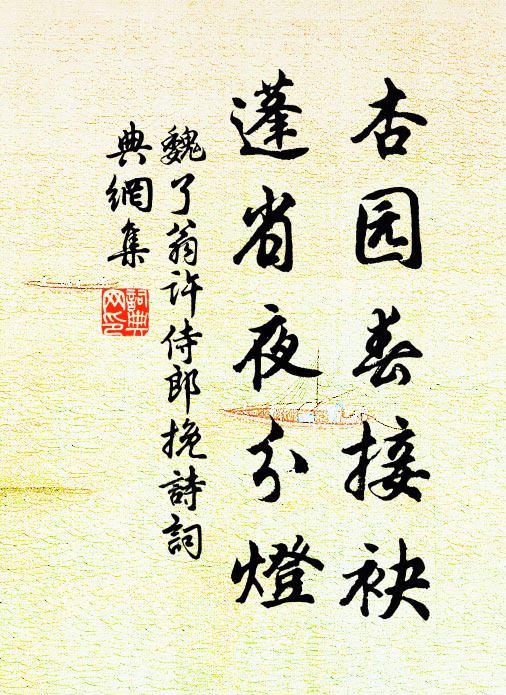 杏园春接袂
蓬省夜分燈
魏了翁许侍郎挽詩詞
典網集
詞典网印